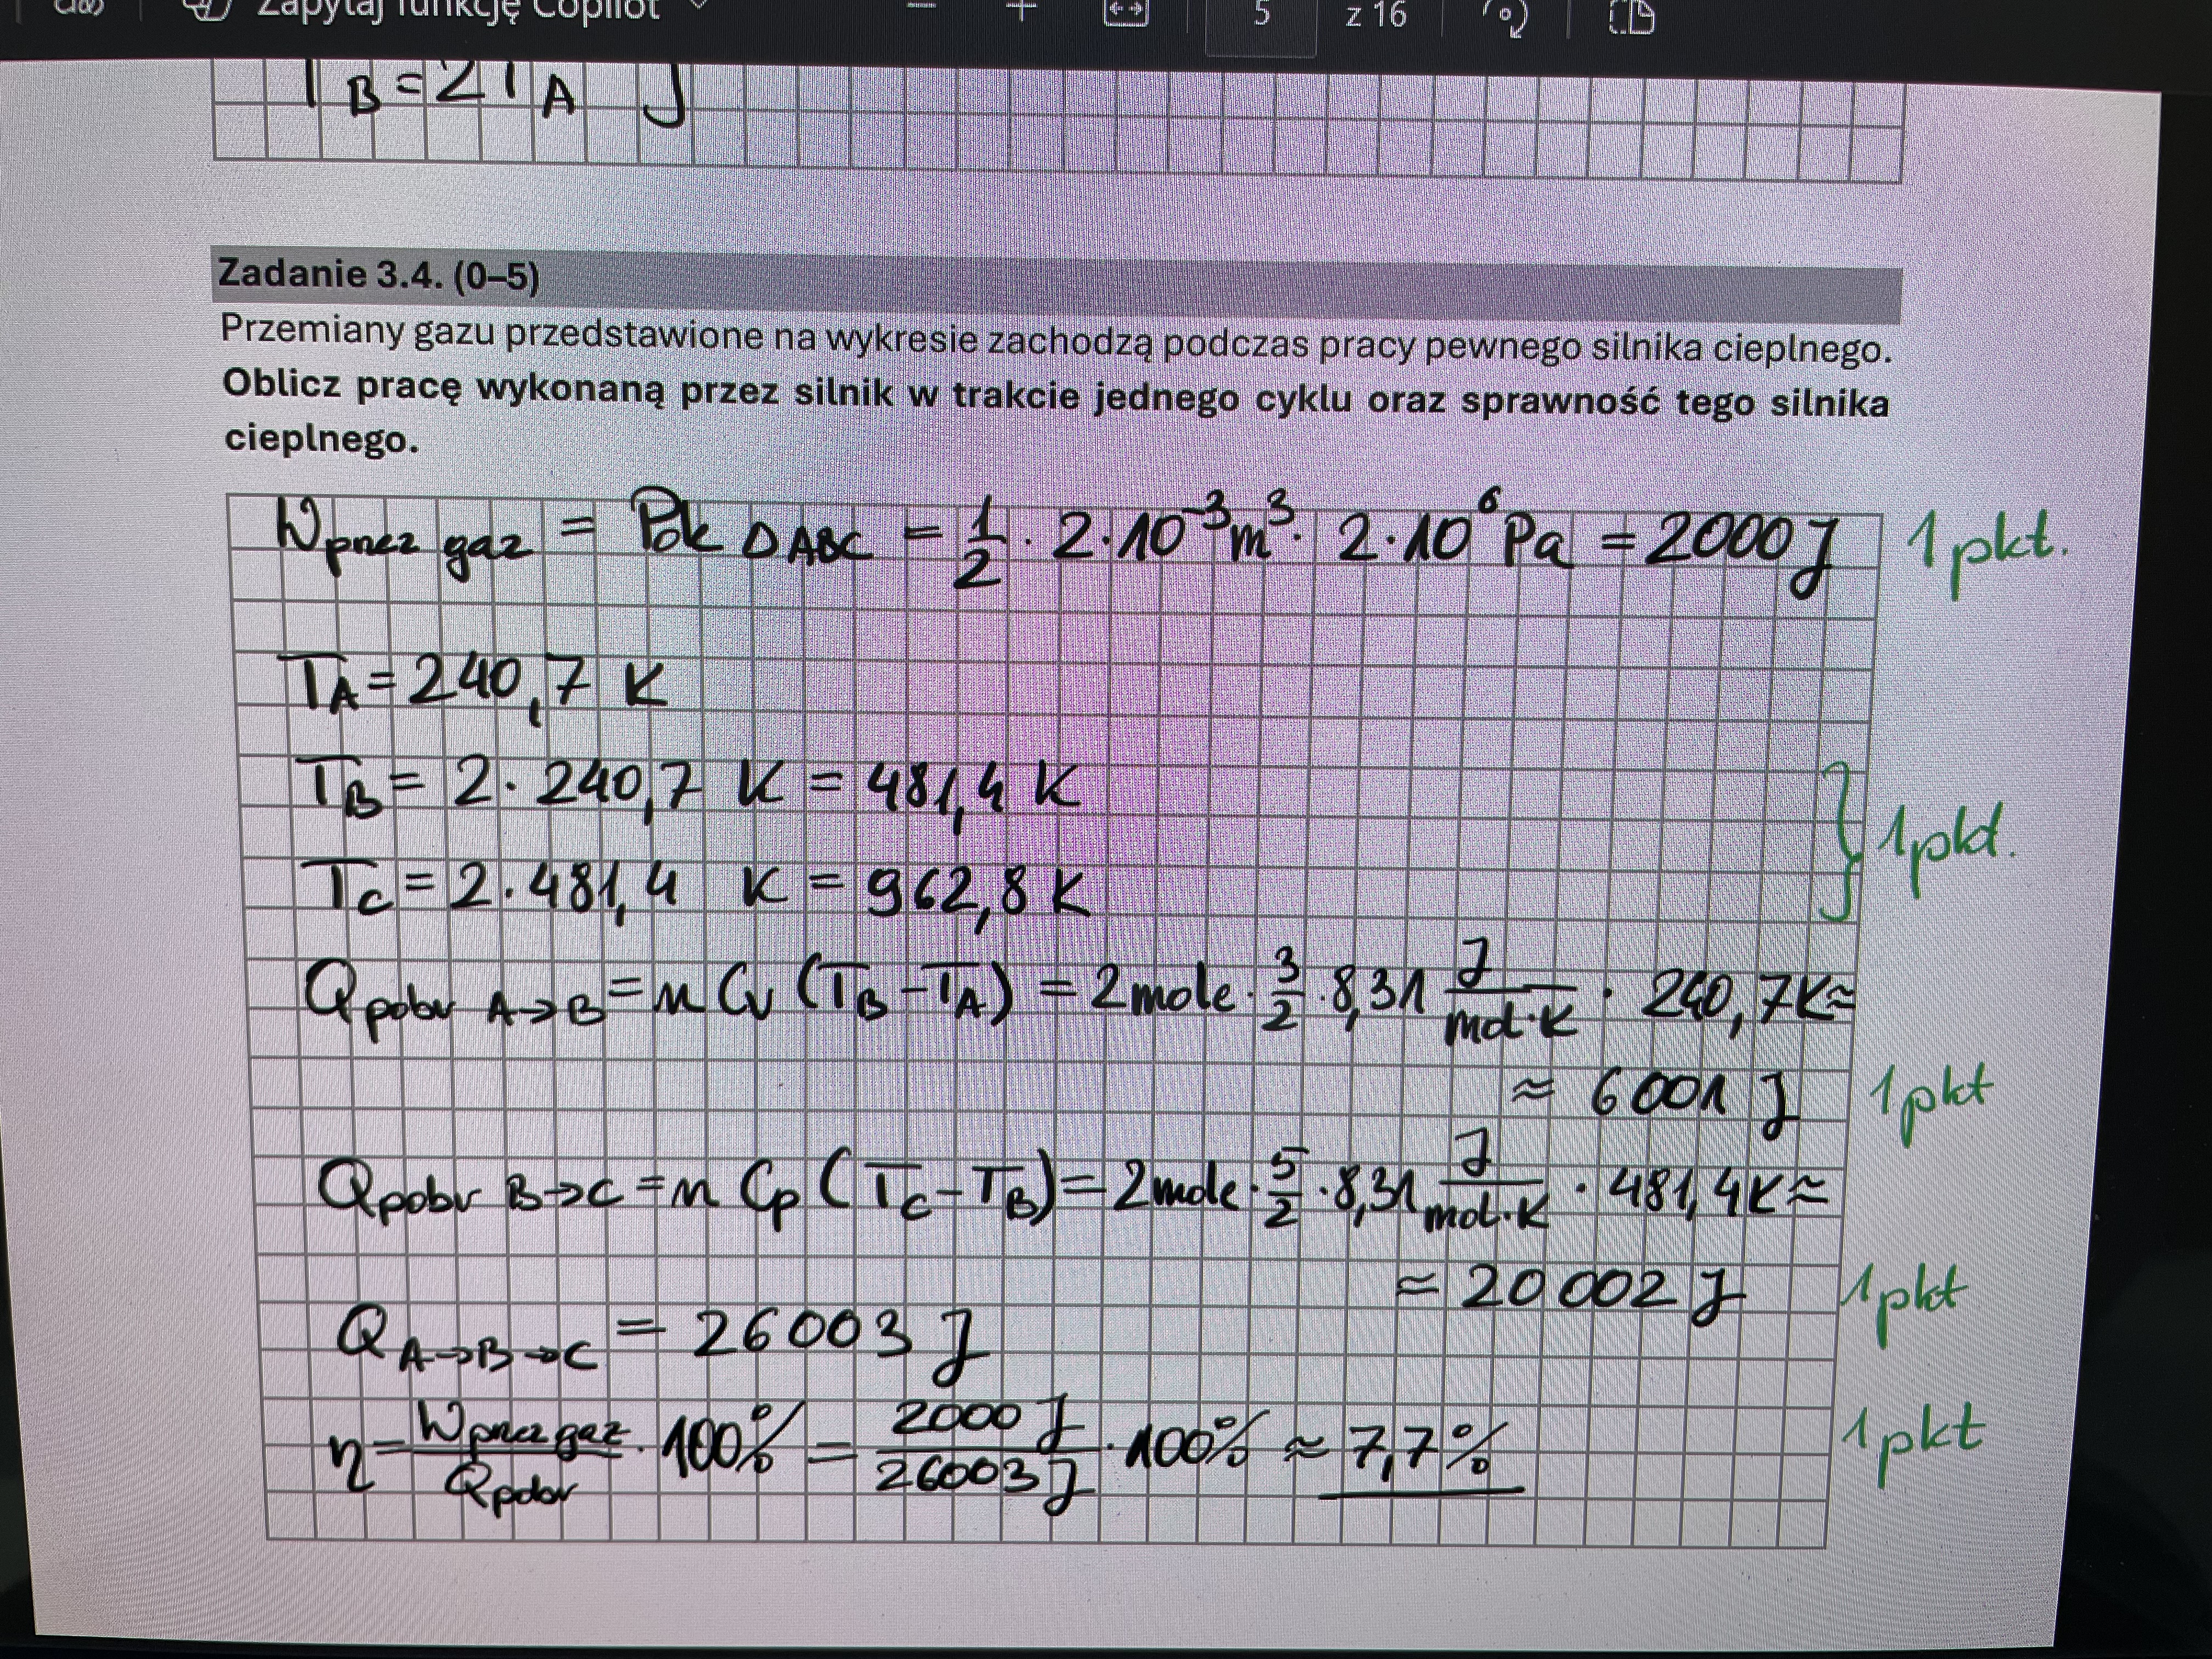 Zapytaj funkcję Copilot 5 z 16
T_B = 2T_A
Zadanie 3.4. (0–5)
Przemiany gazu przedstawione na wykresie zachodzą podczas pracy pewnego silnika cieplnego.
Oblicz pracę wykonaną przez silnik w trakcie jednego cyklu oraz sprawność tego silnika
cieplnego.
W przez gaz = Pole Δ ABC = 1/2 · 2·10⁻³ m³ · 2·10⁶ Pa = 2000 J 1 pkt.
T_A = 240,7 K
T_B = 2 · 240,7 K = 481,4 K
1 pkt.
T_C = 2 · 481,4 K = 962,8 K
Q pobr A→B = n Cv (T_B − T_A) = 2 mole · 3/2 · 8,31 J/mol·K · 240,7 K ≈
≈ 6001 J 1 pkt
Q pobr B→C = n Cp (T_C − T_B) = 2 mole · 5/2 · 8,31 J/mol·K · 481,4 K ≈
≈ 20 002 J 1 pkt
Q A→B→C = 26 003 J
η = W przez gaz / Q pobr · 100% = 2000 J / 26003 J · 100% ≈ 7,7% 1 pkt